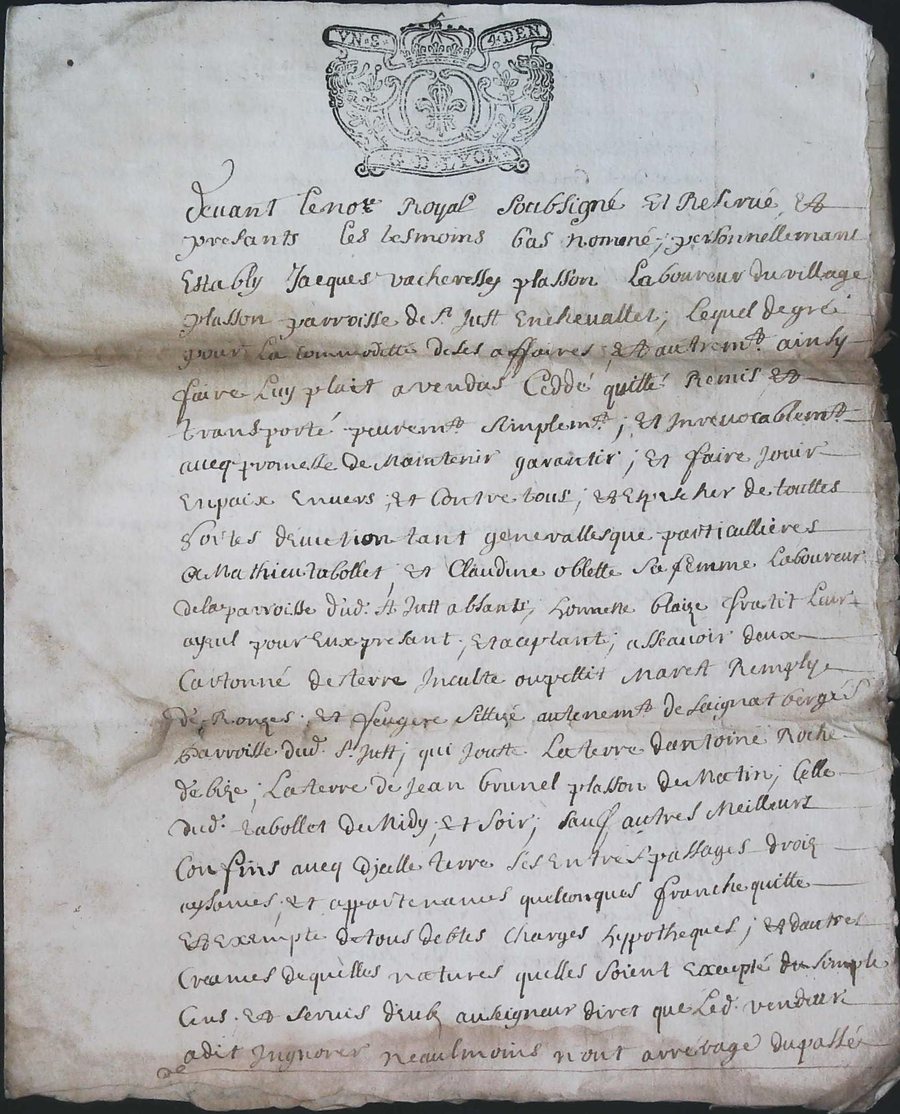 VN·S· 4·DEN
G·D·LYON
devant le nore Royal soubsigné Et Reservé, Et
presants les tesmoins bas nommé; personnellemant
Estably Jacques vacheresses plasson Laboureur du village
plasson parroisse de St Just Enchevallet; lequel de gré
pour La commodette de ses affaires, Et autremt. ainsy
faire Luy plait a vendus Ceddé quitté Remis Et
transporté puremt. simplemt.; Et Inrevocablemt.
avecq promesse de Maintenir garantir; Et faire Jouir
En paix Envers; Et Contre tous; Et Espescher de touttes
sortes deviction tant generalles que particullières
a Mathieu tabollet; Et Claudine oblette sa femme Laboureur
de la parroisse dud. St Just absants; honneste blaize fratit Leur
ayeul pour Eux presant; Et aceptant; asseavoir deux
Cartonné de terre Inculte ou pettit Marest Remplye
de Ronzes; Et feugere sittizé au tenemt. de Saignat bergés
parroisse dud. St Just; qui Jouste La terre dantoine Roche
de bize; La terre de Jean brunel plasson de Matin; Celle
dud. tabollet de Midy; Et soir; sauf autres Meilleurs
Confins avecq dicelle terre ses Entrés passages droiz
aysances, Et appartenances quelconques franche quitte
Et Exempte de tous debtes Charges hypotheques; Et dautres
Creames de quelles natures quelles soient Excepté du simple
Cens. Et servis deub au seigneur diret que Led. vendeur
a dit Ingnorer neaulmoins nont arrerage du passé
de